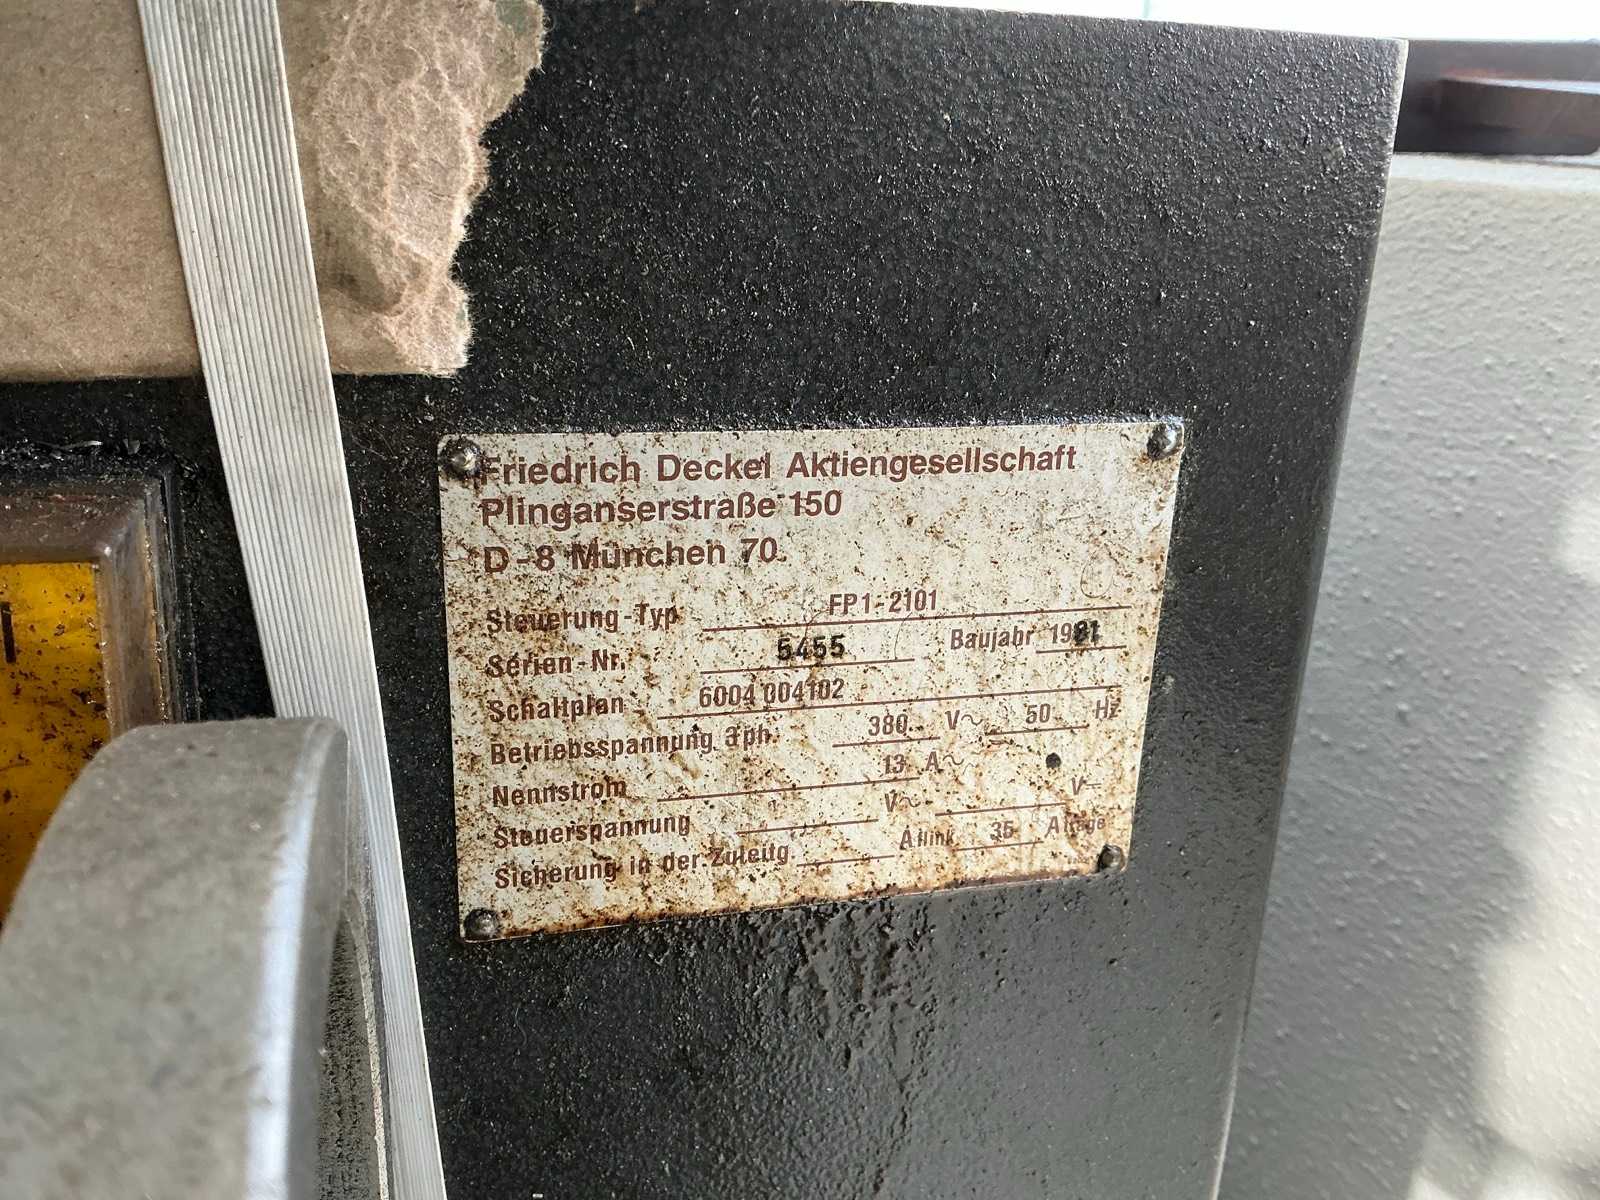 Friedrich Deckel Aktiengesellschaft
Plinganserstraße 150
D-8 München 70
Steuerung-Typ FP1-2101
Serien-Nr. 5455 Baujahr 1981
Schaltplan 6004 004102
Betriebsspannung 3ph. 380 V~ 50 Hz
Nennstrom 13 A~
Steuerspannung V~ V
Sicherung in der Zuleitg. A flink 35 A träge